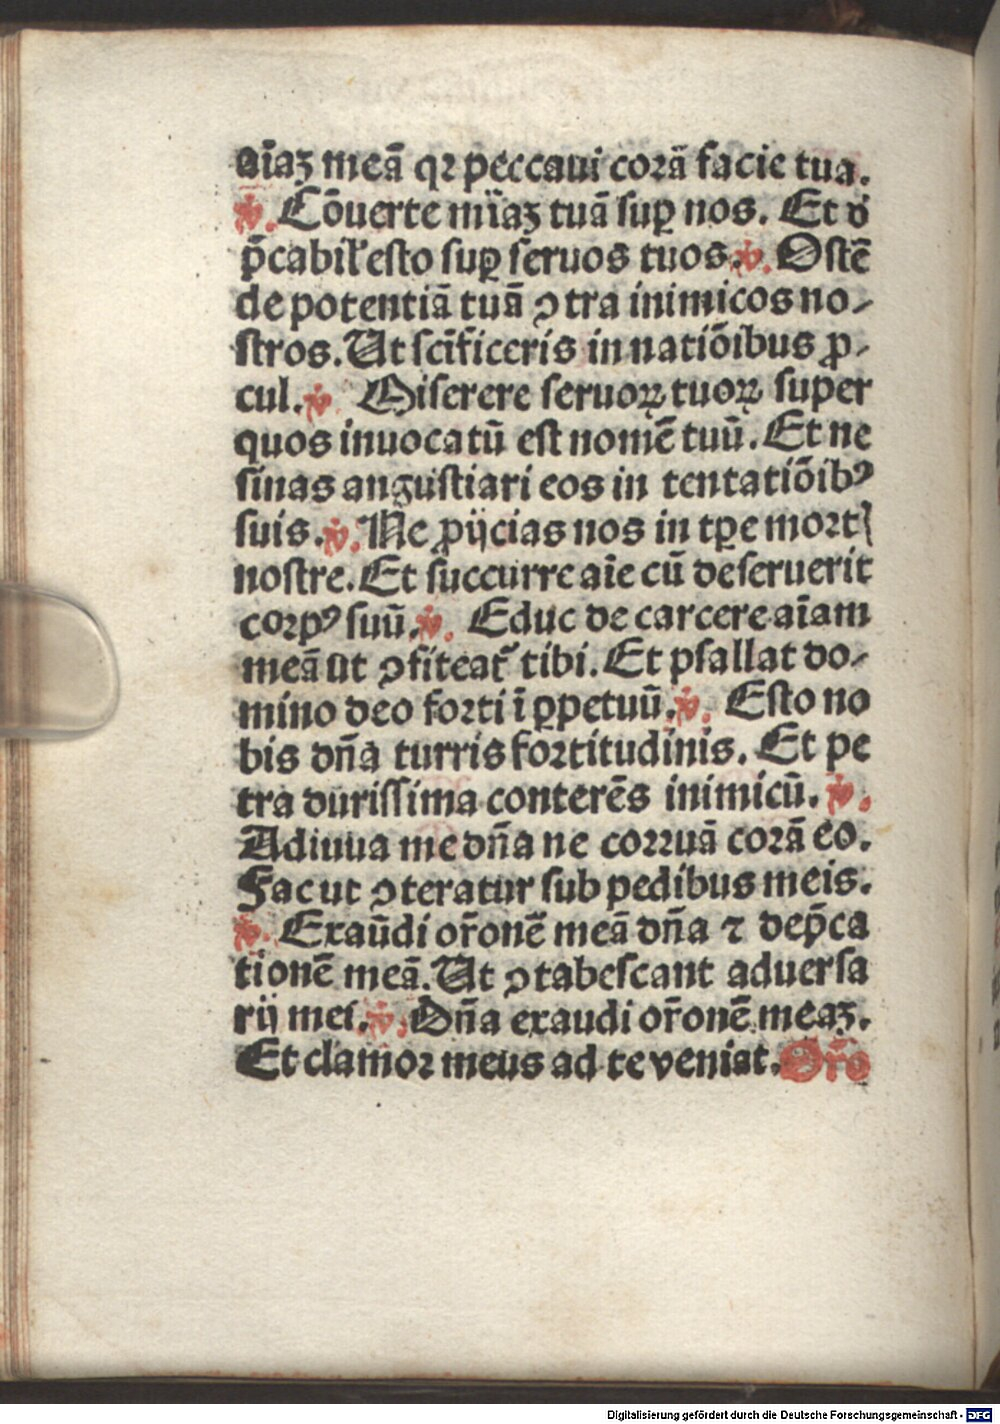 aīaꝫ meā qꝛ peccaui corā facie tua.
℣. Cōuerte mīaꝫ tuā suꝑ nos. Et d̄
p̄cabilʼ esto suꝑ seruos tuos. ℣. Ostē
de potentiā tuā ꝯtra inimicos no-
stros. Ut scīficeris in natiōibus ꝓ-
cul. ℣. Miserere seruoꝝ tuoꝝ super
quos inuocatū est nomē tuū. Et ne
sinas angustiari eos in tentatiōibꝰ
suis. ℣. Ne ꝓijcias nos in tꝑe mortꝭ
nostre. Et succurre aīe cū deseruerit
corpꝰ suū. ℣. Educ de carcere aīam
meā ut ꝯfiteat᷑ tibi. Et psallat do-
mino deo forti ī ꝑpetuū. ℣. Esto no
bis dn̄a turris fortitudinis. Et pe
tra durissima conterēs inimicū. ℣.
Adiuua me dn̄a ne corruā corā eo.
Fac ut ꝯteratur sub pedibus meis.
℣. Exaūdi or̄onē meā dn̄a ⁊ dep̄ca
tionē meā. Ut ꝯtabescant aduersa
rij mei. ℣. Dn̄a exaudi or̄onē meaꝫ.
Et clamor meus ad te veniat. Or̄o
Digitalisierung gefördert durch die Deutsche Forschungsgemeinschaft - DFG